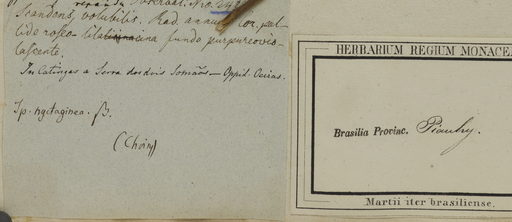 Scandens, volubilis. Rad. annua. Cor. pal-
lide roseo- lilacina fundo purpureo vio-
lascente.
In Catingas a Serra dos dois Irmãos — Oppid. Oeiras.
Sp. nyctaginea. β.
(Choisy)
HERBARIUM REGIUM MONACE
Brasilia Provinc. Piauhy.
Martii iter brasiliense.